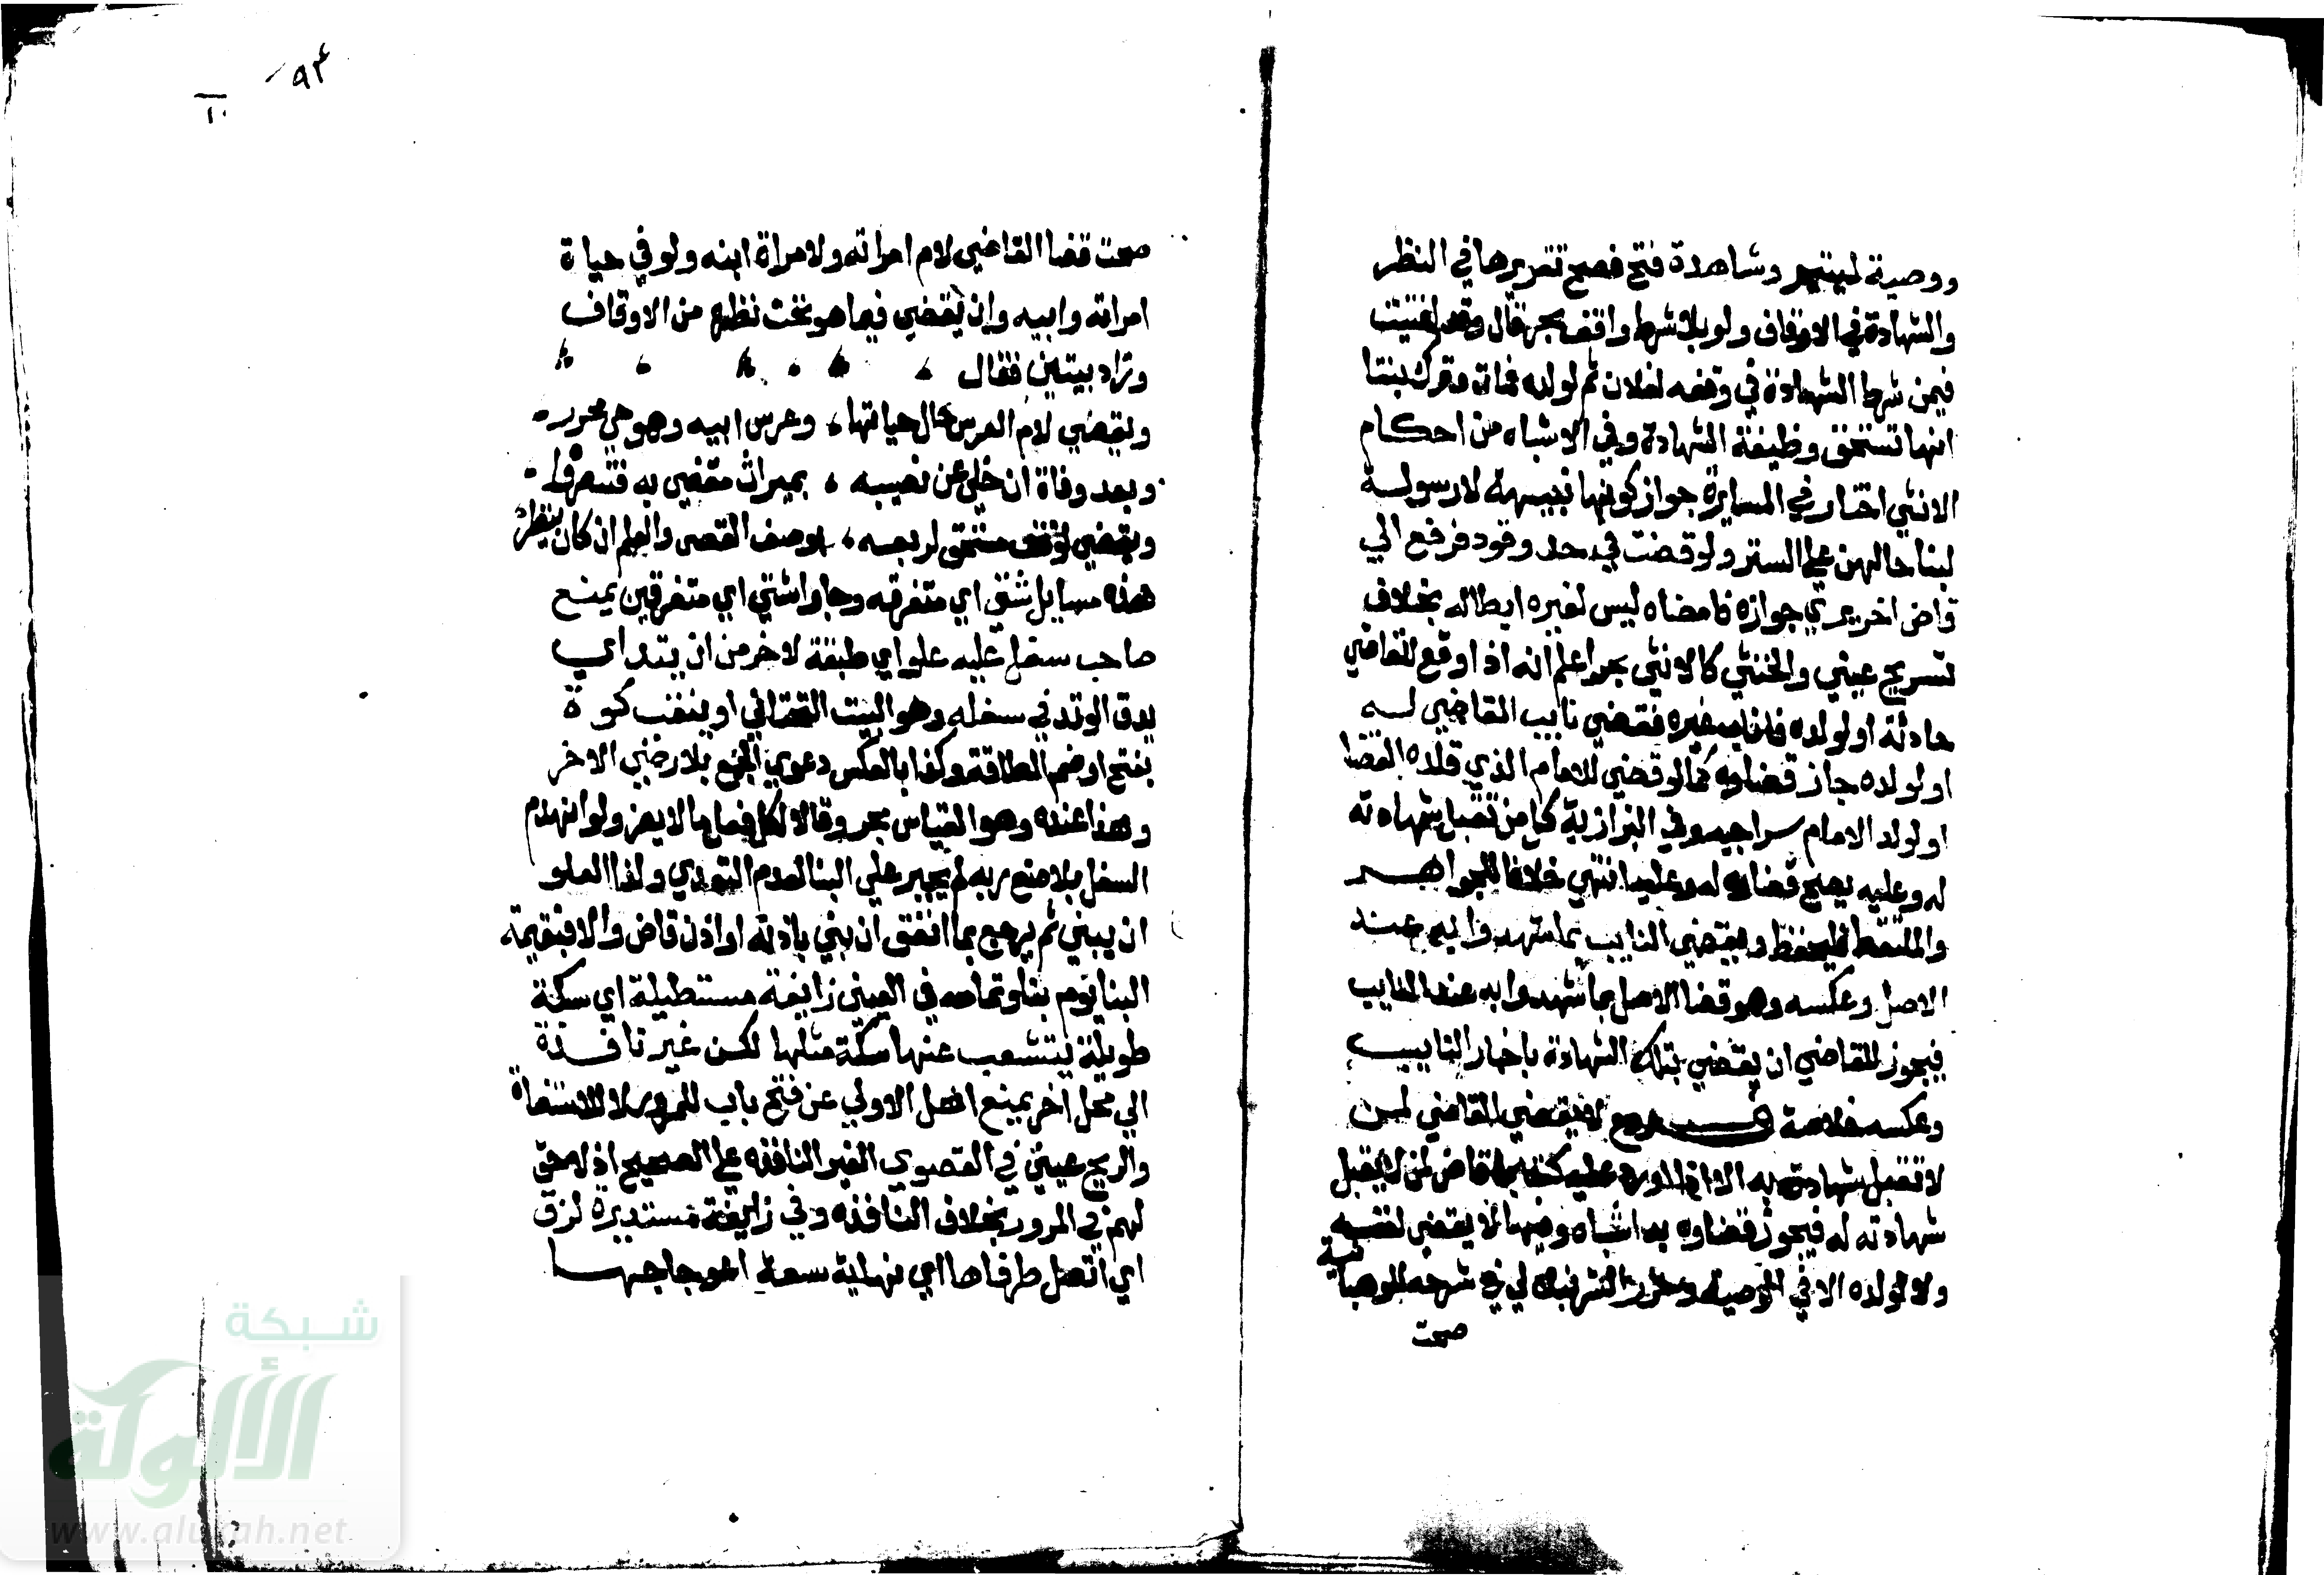 ووصية ليتيم وشاهدة فتح فصح تقريرها في النظر
والشهادة في الاوقاف ولو بلا شرط واقف بحر قال وقد افتيت
فيمن شرط الشهادة في وقفه لفلان ثم لولده فمات وترك بنتا
انها تستحق وظيفة الشهادة وفي الاشباه من احكام
الانثي اختار في المسايرة جواز كونها نبيه لا رسولة
لبنا حالهن علي الستر ولو قضت في حد وقود فرفع الي
قاض اخر يري جوازه فامضاه ليس لغيره ابطاله بخلاف
شريح عيني والخنثي كالانثي بحر واعلم انه اذا وقع للقاضي
حادثة او لولده فاناب غيره فقضي نايب القاضي له
او لولده جاز قضاوه كما لو قضي للامام الذي قلده القضا
او لولد الامام سراجيه وفي البزازية كل من تقبل شهادته
له وعليه يصح قضاوه له وعليه انتهي خلافا للجواهر
والملتقط فليحفظ ويقضي النايب بما شهدوا به عند
الاصل وعكسه وهو قضا الاصل بما شهدوا به عند النايب
فيجوز للقاضي ان يقضي بتلك الشهادة باخبار النايب
وعكسه خلاصة فروع لا يقضي القاضي لمن
لا تقبل شهادته له الا اذا ورد عليه كتاب قاض لمن لا تقبل
شهادته له فيجوز قضاوه به اشباه وفيها لا يقضي لنفسه
ولا لولده الا في الوصية وحرر الشرنبلالي في شرحه للوهبانية
صحت
٩٣
١٠
صحت قضا القاضي لام امراته ولامراة ابنه ولو في حياة
امراته وابيه وان يقضي فيما هو تحت نظره من الاوقاف
وزاد بيتين فقال
ويقضي لام العرس حال حياتها ، وعرس ابيه وهو حي محرر
وبعد وفاة ان خلي عن نصيبه ، بميراث مقضي به فتبصروا
ويقضي لوقف مستحق لريعه ، بوصف القضي والعلم ان كان ينظر
هذه مسايل شتي اي متفرقه وجاوا شتي اي متفرقين يمنع
صاحب سفل عليه علو اي طبقة لاخر من ان يتد اي
يدق الوتد في سفله وهو البيت التحتاني او ينقب كوة
بفتح او ضم الطاقة وكذا بالعكس دعوي المجمع بلا رضي الاخر
وهذا عنده وهو القياس بحر وقالا لكل فعل ما لا يضر ولو انهدم
السفل بلا صنع ربه لم يجبر علي البنا لعدم التعدي ولذا العلو
ان يبني ثم يرجع بما انفق ان بني باذنه او اذن قاض والا فبقيمة
البنا يوم بناه وتمامه في العيني زايغة مستطيلة اي سكة
طويلة يتشعب عنها سكة مثلها لكن غير نافذة
الي محل اخر يمنع اهل الاولي عن فتح باب للمرور لا للاستضاة
والريح عيني في القصوي الغير النافذه علي الصحيح اذ لا حق
لهم في المرور بخلاف النافذه وفي زايغة مستديرة لزق
اي اتصل طرفاها اي نهاية سعة اعوجاجها
شبكة
الألوكة
www.alukah.net